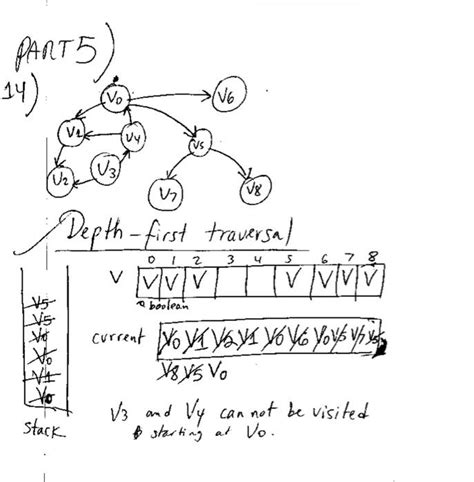 PART 5)
14)
V0
V6
V1
V4
V5
V2
V3
V7
V8
Depth-first traversal
0 1 2 3 4 5 6 7 8
V V V V V V V V
boolean
current V0 V1 V2 V1 V0 V6 V0 V5 V7 V5
V8 V5 V0
V5
V5
V0
V0
V1
V0
Stack
V3 and V4 can not be visited
starting at V0.